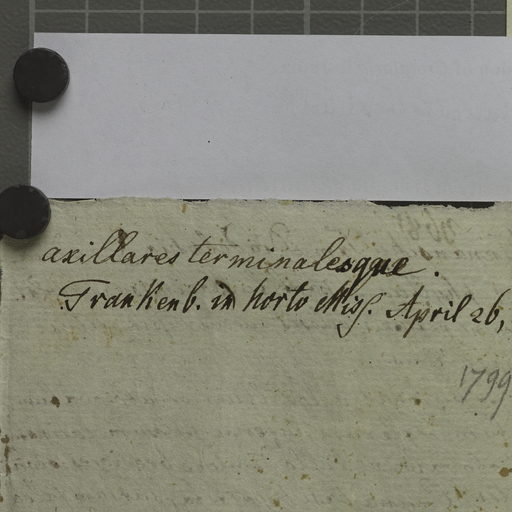 axillares terminalesque.
Frankenb. in horto Miss. April 26,
1799